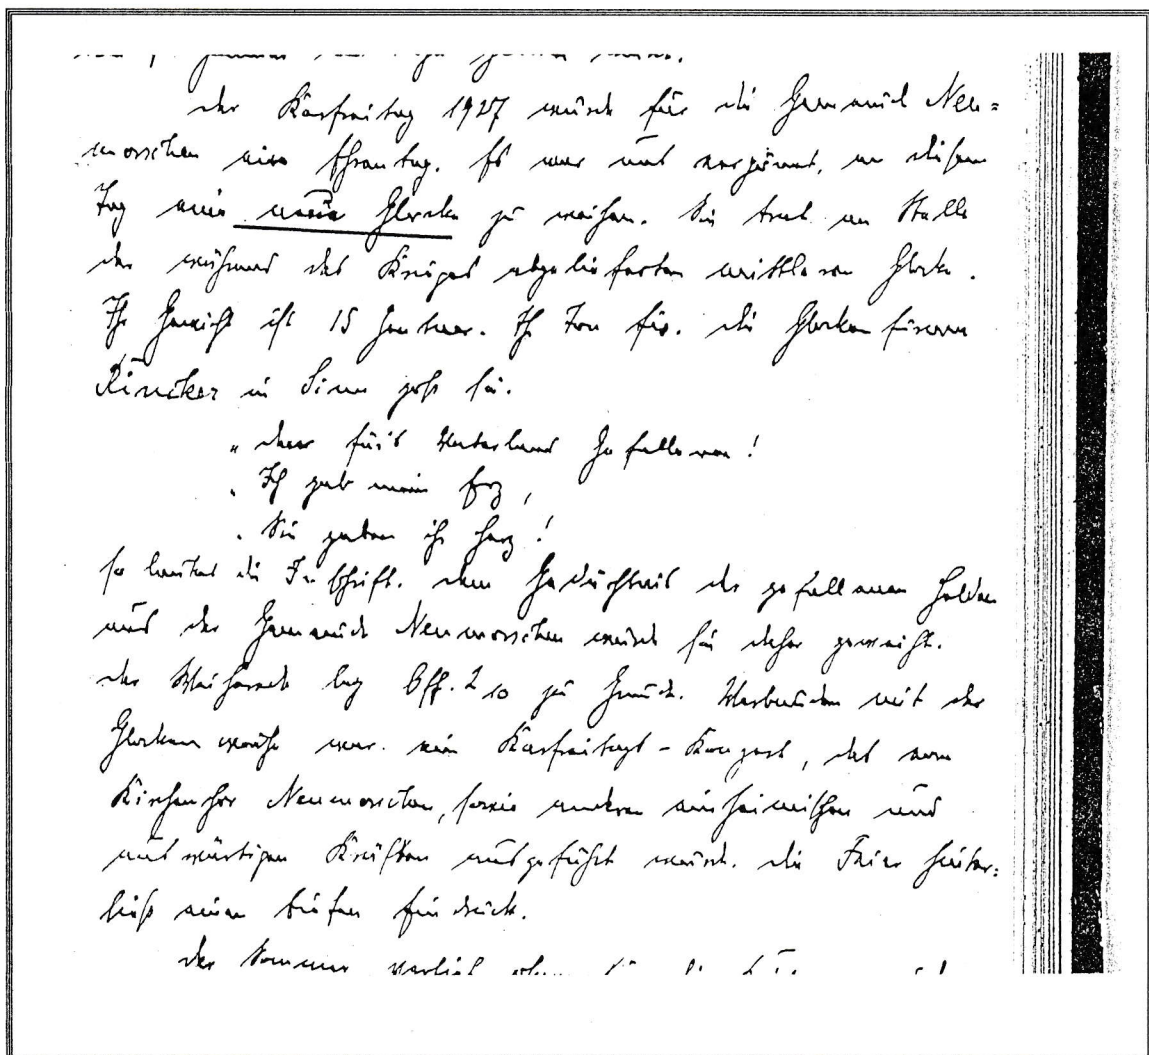 Der Karfreitag 1927 wurde für die Gemeinde Neu=
morschen ein Ehrentag. Es war uns vergönnt, an diesem
Tag eine neue Glocke zu weihen. Sie trat an Stelle
der während des Krieges abgelieferten mittleren Glocke.
Ihr Gewicht ist 15 Zentner. Ihr Ton fis. Die Glockenfirma
Rincker in Sinn goß sie.
„Den für's Vaterland Gefallenen!
„Ich gab mein Erz,
„Sie gaben ihr Herz!
so lautet die Inschrift. Dem Gedächtnis der gefallenen Helden
aus der Gemeinde Neumorschen wurde sie daher geweiht.
Der Weiherede lag Off. 2 10 zu Grunde. Verbunden mit der
Glockenweihe war ein Karfreitags-Konzert, das vom
Kirchenchor Neumorschen, sowie anderen einheimischen und
auswärtigen Kräften ausgeführt wurde. Die Feier hinter=
ließ einen tiefen Eindruck.
Der Sommer verlief ohne